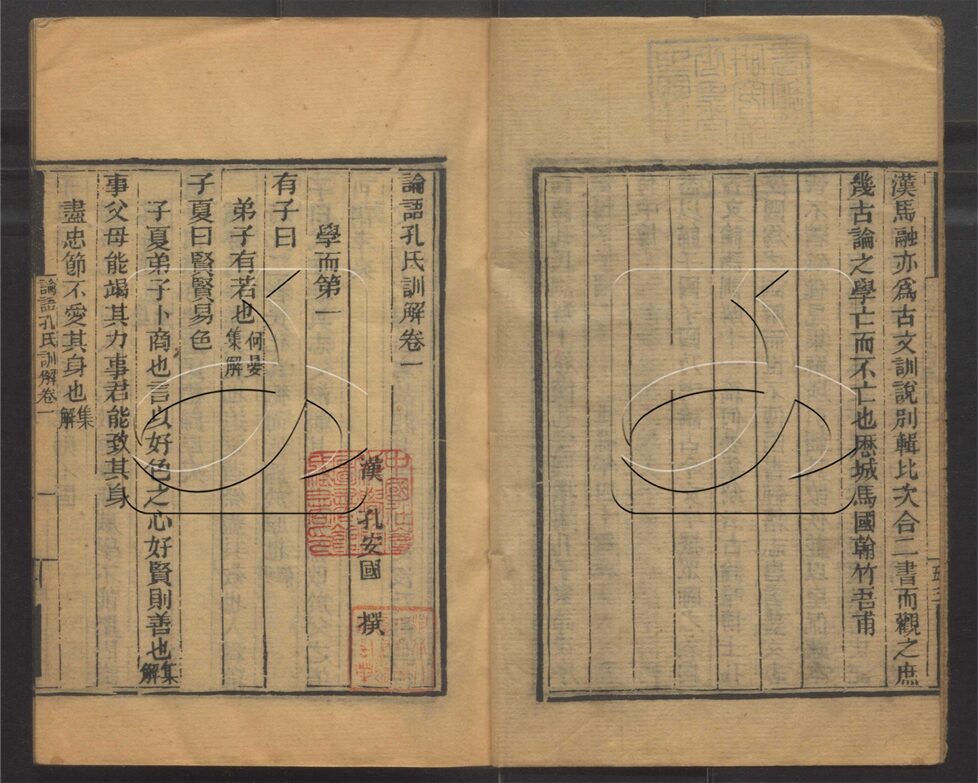 漢馬融亦爲古文訓說別輯比次合二書而觀之庶
幾古論之學亡而不亡也歷城馬國翰竹吾甫
論語孔氏訓解卷一
漢 孔安國 撰
學而第一
有子曰
弟子有若也何晏集解
子夏曰賢賢易色
子夏弟子卜商也言以好色之心好賢則善也集解
事父母能竭其力事君能致其身
盡忠節不愛其身也集解
論語孔氏訓解卷一